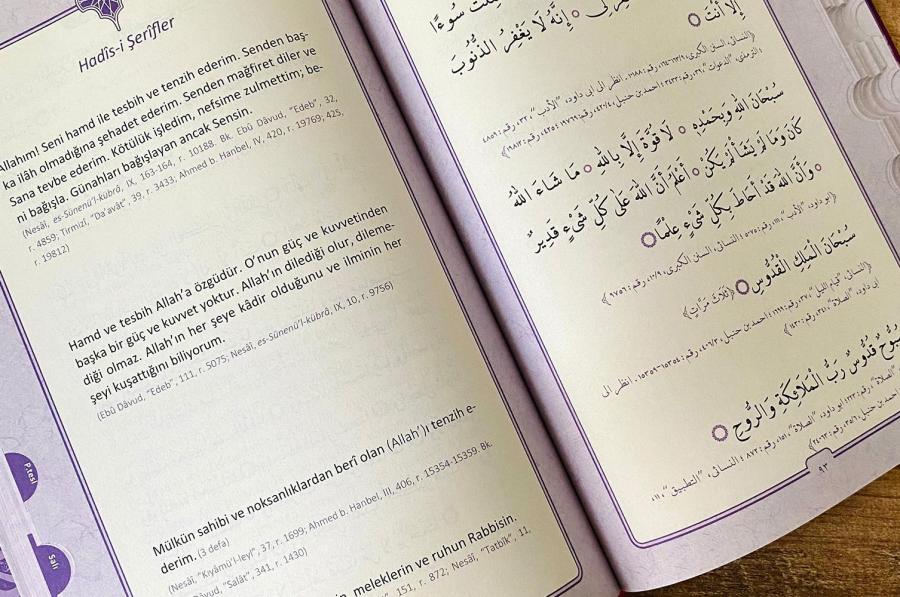 Hadîs-i Şerîfler
Allahım! Seni hamd ile tesbih ve tenzih ederim. Senden baş-
ka ilâh olmadığına şehadet ederim. Senden mağfiret diler ve
Sana tevbe ederim. Kötülük işledim, nefsime zulmettim; be-
ni bağışla. Günahları bağışlayan ancak Sensin.
(Nesâî, es-Sünenü'l-kübrâ, IX, 163-164, r. 10188. Bk. Ebû Dâvud, "Edeb", 32,
r. 4859, Tirmizî, "Da'avât", 39, r. 3433, Ahmed b. Hanbel, IV, 420, r. 19769, 425,
r. 19812)
Hamd ve tesbih Allah'a özgüdür. O'nun güç ve kuvvetinden
başka bir güç ve kuvvet yoktur. Allah'ın dilediği olur, dileme-
diği olmaz. Allah'ın her şeye kâdir olduğunu ve ilminin her
şeyi kuşattığını biliyorum.
(Ebû Dâvud, "Edeb", 111, r. 5075; Nesâî, es-Sünenü'l-kübrâ, IX, 10, r. 9756)
Mülkün sahibi ve noksanlıklardan berî olan (Allah')ı tenzih e-
derim. (3 defa)
(Nesâî, "Kıyâmü'l-leyl", 37, r. 1699; Ahmed b. Hanbel, III, 406, r. 15354-15359. Bk.
"Salât", 341, r. 1430)
meleklerin ve ruhun Rabbisin.
151, r. 872; Nesâî, "Tatbîk", 11,
P.tesi
Salı
إِلَّا أَنْتَ
إِنَّهُ لَا يَغْفِرُ الذُّنُوبَ
سُبْحَانَ اللهِ وَبِحَمْدِهِ لَا قُوَّةَ إِلَّا بِاللهِ مَا شَاءَ اللهُ
كَانَ وَمَا لَمْ يَشَأْ لَمْ يَكُنْ أَعْلَمُ أَنَّ اللهَ عَلَى كُلِّ شَيْءٍ قَدِيرٌ
وَأَنَّ اللهَ قَدْ أَحَاطَ بِكُلِّ شَيْءٍ عِلْمًا
سُبْحَانَ الْمَلِكِ الْقُدُّوسِ (ثَلَاثَ مَرَّاتٍ)
قُدُّوسٌ رَبُّ الْمَلَائِكَةِ وَالرُّوحِ
٩٣